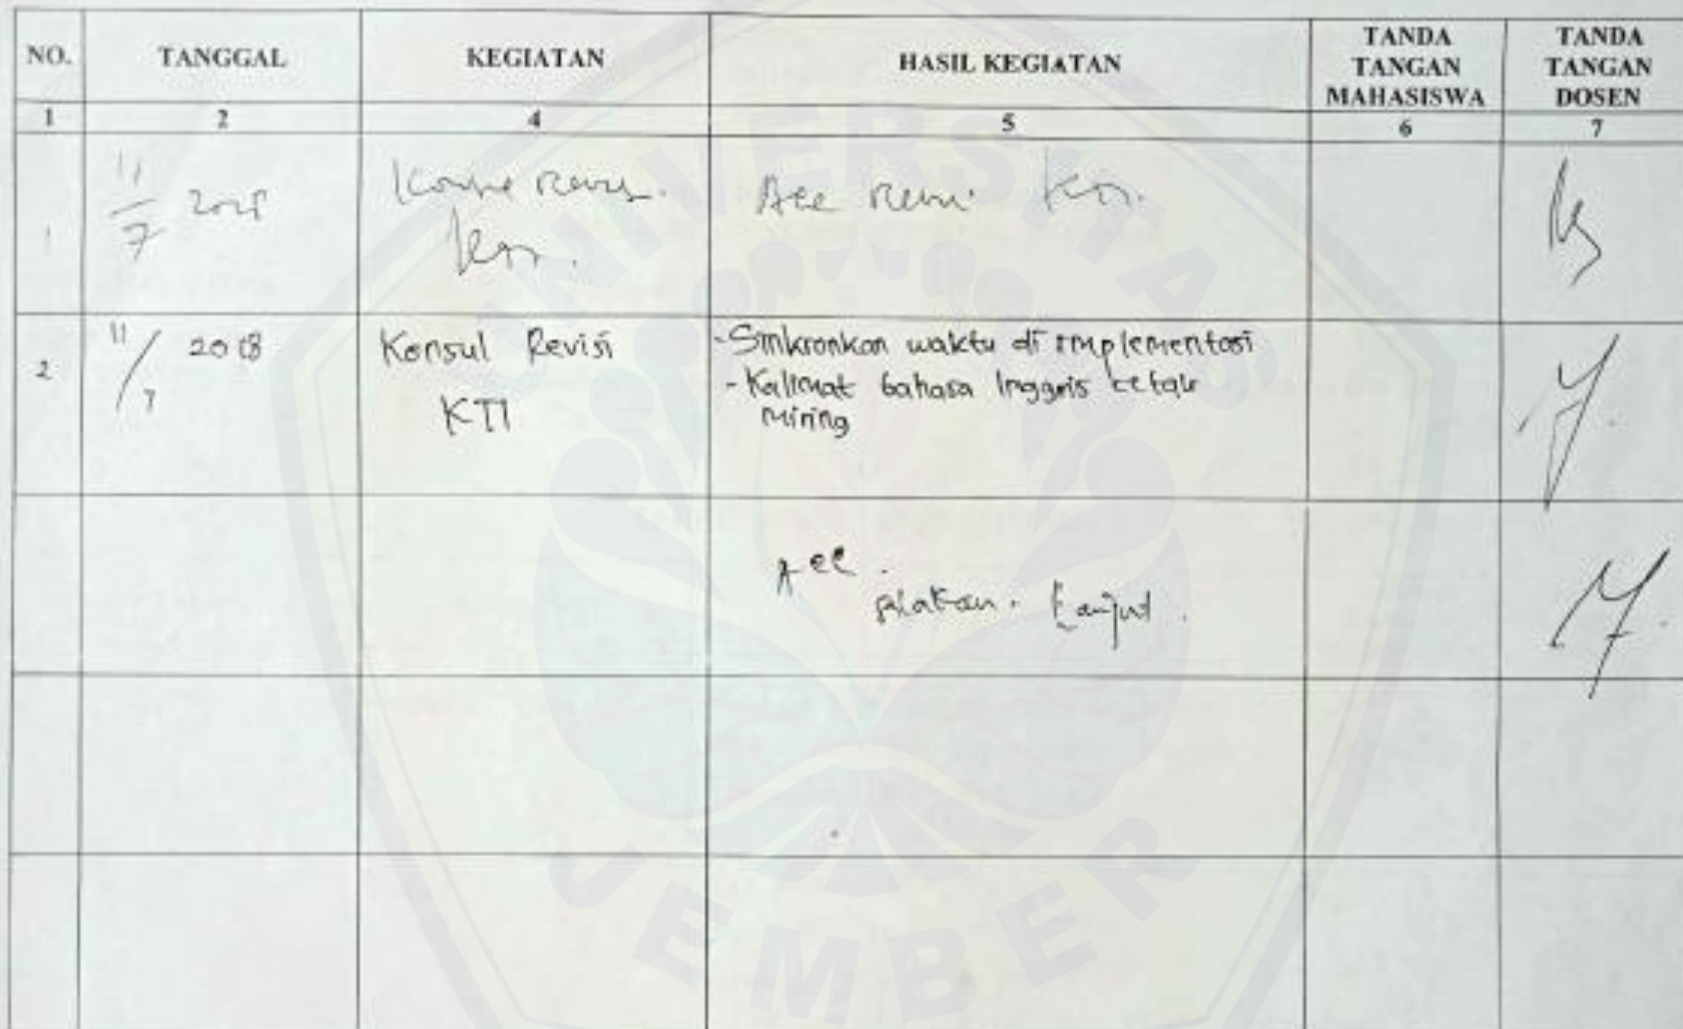 NO. TANGGAL KEGIATAN HASIL KEGIATAN TANDA TANGAN MAHASISWA TANDA TANGAN DOSEN
1 2 4 5 6 7
1 11/7 2018 Acc
2 11/7 2018 Konsul Revisi -Sinkronkan waktu di implementasi
KTI - Kalimat bahasa Inggris cetak
miring
Acc.
silakan. Lanjut.
UNIVERSITAS
JEMBER